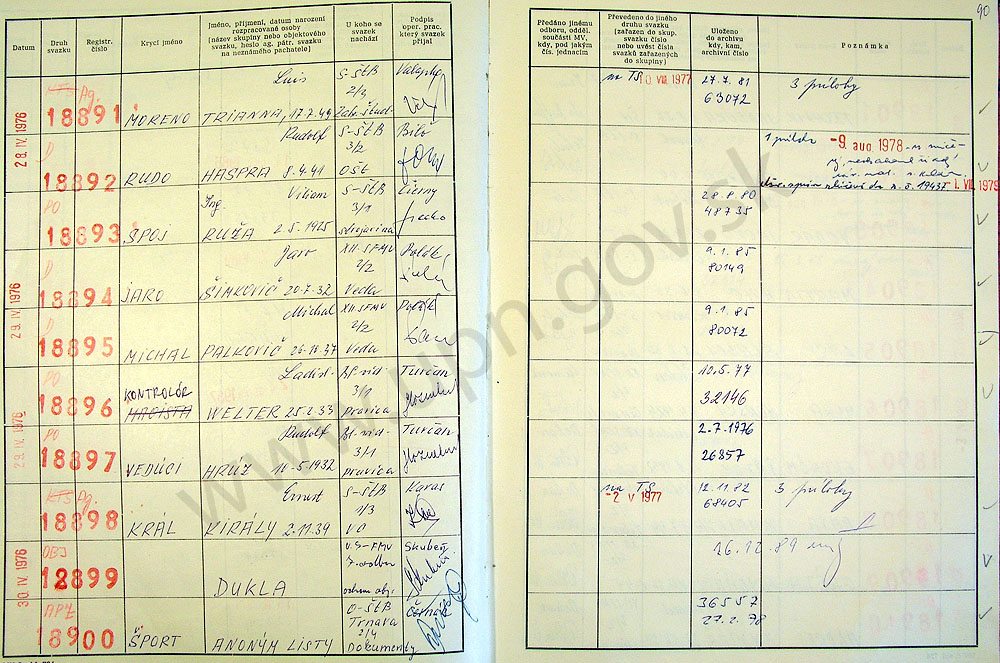 90
Datum
Druh svazku
Registr. číslo
Krycí jméno
Jméno, příjmení, datum narození
rozpracované osoby
(název skupiny nebo objektového
svazku, heslo ag. pátr. svazku
na neznámého pachatele)
U koho se
svazek
nachází
Podpis
oper. prac.
který svazek
přijal
Předáno jinému
odboru, odděl.
součásti MV,
kdy, pod jakým
čís. jednacím
Převedeno do jiného
druhu svazku
(zařazen do skup.
svazku číslo
nebo uvést čísla
svazků zařazených
do skupiny)
Uloženo
do archivu
kdy, kam,
archivní číslo
Poznámka
28. IV. 1976
KTS Ag.
18891
MORENO
Luis
TRIANNA, 17.2.49
S-ŠtB
2/3
Zahr. štud.
na TS 10 VIII. 1977
27.7.81
63072
3 prílohy
D
18892
RUDO
Rudolf
HASPRA 8.4.41
S-ŠtB
3/2
OŠt
Bilo
1 príloha -9. aug 1978
1. VII. 1979
PO
18893
ŠPOJ
Ing. Viliam
RUŽA 2.5.1925
S-ŠtB
3/1
Čierny
28.8.80
48735
29. IV. 1976
D
18894
JARO
Jaro
ŠIMKOVIČ 20.7.32
XII. SFMV
2/2
Veda
9.1.85
80149
D
18895
MICHAL
Michal
PALKOVIČ
XII. SFMV
2/2
Veda
9.1.85
80072
29. IV. 1976
PO
18896
KONTROLÓR
Ladisl.
WELTER 25.2.33
3/1
pravica
Turčan
10.5.77
32146
PO
18897
VEDÚCI
Rudolf
HRÚZ 14.5.1932
3/1
pravica
Turčan
2.7.1976
26857
KTS Ag.
18898
KRÁL
Ernest
KIRÁLY 2.11.39
S-ŠtB
1/3
VO
Karas
na TS
-2 V 1977
12.11.82
68405
3 prílohy
30. IV. 1976
OBJ
18899
DUKLA
7. odbor
ochrany obj.
Skubeň
26.12.89
APZ
18900
ŠPORT
ANONYM LISTY
O-ŠtB
Trnava
2/4
Dokumenty
36557
27.2.78
www.upn.gov.sk